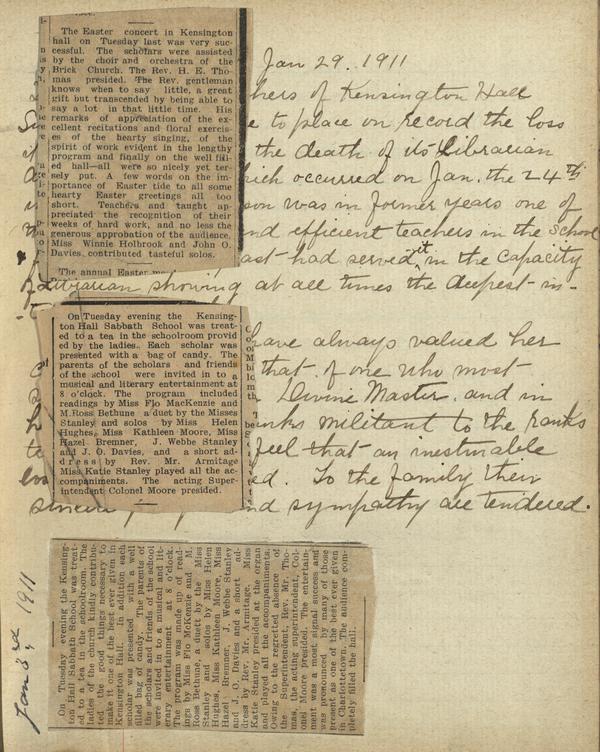 The Easter concert in Kensington
hall on Tuesday last was very suc-
cessful. The scholars were assisted
by the choir and orchestra of the
Brick Church. The Rev. H. E. Tho-
mas presided. The Rev. gentleman
knows when to say little, a great
gift but transcended by being able to
say a lot in that little time. His
remarks of appreciation of the ex-
cellent recitations and floral exercis-
es of the hearty singing, of the
spirit of work evident in the lengthy
program and finally on the well fill-
ed hall—all were so nicely yet ter-
sely put. A few words on the im-
portance of Easter tide to all some
hearty Easter greetings all too
short. Teachers and taught ap-
preciated the recognition of their
weeks of hard work, and no less the
generous approbation of the audience.
Miss Winnie Holbrook and John O.
Davies contributed tasteful solos.
The annual Easter
Jan 29. 1911
hers of Kensington Hall
e to place on record the loss
the death of its Librarian
hich occurred on Jan. the 24th
son was in former years one of
nd efficient teachers in the School
ast had served it in the capacity
of Librarian showing at all times the deepest in-
On Tuesday evening the Kensing-
ton Hall Sabbath School was treat-
ed to a tea in the schoolroom provid
ed by the ladies. Each scholar was
presented with a bag of candy. The
parents of the scholars and friends
of the school were invited in to a
musical and literary entertainment at
8 o'clock. The program included
readings by Miss Flo MacKenzie and
M.Ross Bethune a duet by the Misses
Stanley and solos by Miss Helen
Hughes, Miss Kathleen Moore, Miss
Hazel Bremner, J. Webbe Stanley
and J. O. Davies, and a short ad-
dress by Rev. Mr. Armitage
Miss Katie Stanley played all the ac-
companiments. The acting Super-
intendent Colonel Moore presided.
have always valued her
that of one who most
Divine Master, and in
anks militant to the ranks
feel that an inestimable
ed. To the family their
sincere nd sympathy are tendered.
Jan 3rd, 1911
On Tuesday evening the Kensing-
ton Hall Sabbath School was treat-
ed to a tea in the schoolroom. The
ladies of the church kindly contribu-
ted the good things necessary to
make it one of the best ever given in
Kensington Hall. In addition each
scholar was presented with a well
filled bag of candy. The parents of
the scholars and friends of the school
were invited in to a musical and lit-
erary entertainment at 8 o'clock.
The program was made up of read-
ings by Miss Flo McKenzie and M.
Ross Bethune, a duet by the Miss
Stanley and solos by Miss Helen
Hughes, Miss Kathleen Moore, Miss
Hazel Bremner, J. Webbe Stanley
and J. O. Davies and a short ad-
dress by Rev. Mr. Armitage. Miss
Katie Stanley presided at the organ
and played all the accompaniments.
Owing to the regretted absence of
the Superintendent, Rev. Mr. Tho-
mas, the acting superintendent, Col-
onel Moore presided. The entertain-
ment was a most signal success and
was pronounced by many of those
present as one of the best ever given
in Charlottetown. The audience com-
pletely filled the hall.